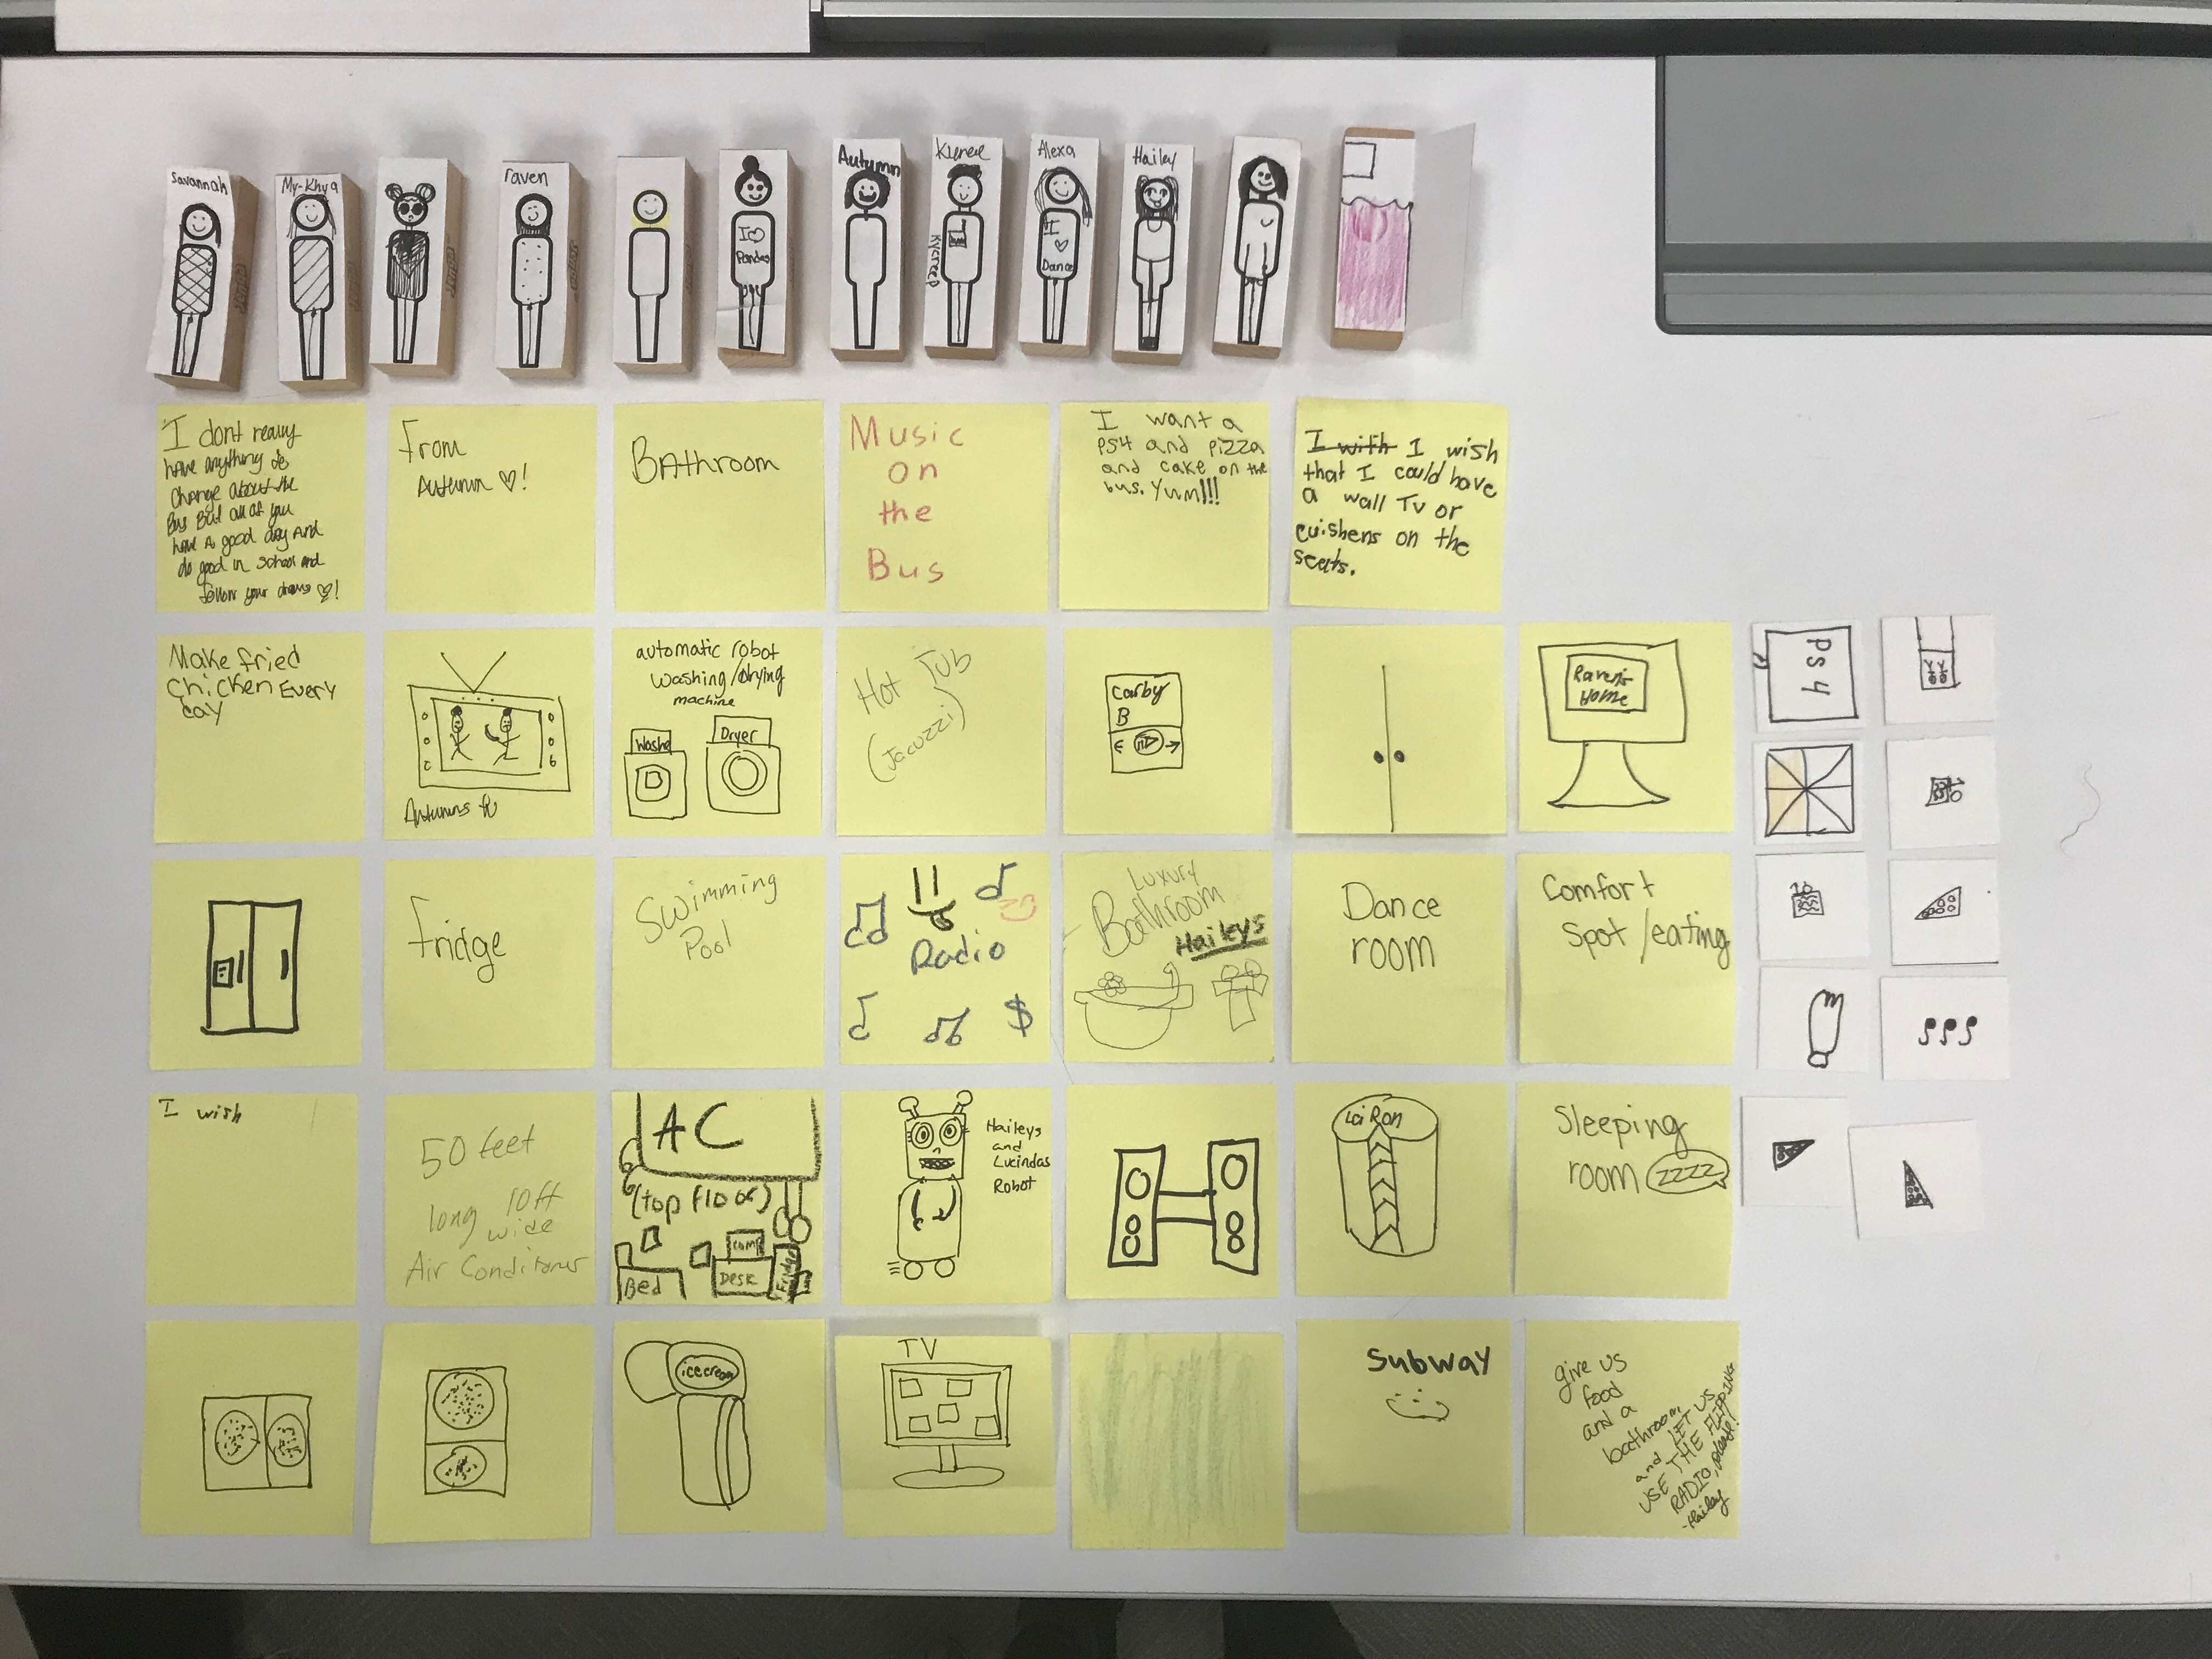 Savannah
My-Khya
raven
I
Pandas
Autumn
Kienee
Alexa
I
Dance
Hailey
I dont really
have anything to
change about the
Bus But all of you
have A good day And
do good in school and
follow your dreams ♡!
From
Autumn ♡!
BAthroom
Music
on
the
Bus
I want a
PS4 and pizza
and cake on the
bus. Yum!!!
I with I wish
that I could have
a wall Tv or
cuishens on the
seats.
Make fried
chicken Every
day
Autumns tv
automatic robot
washing/drying
machine
Washer
Dryer
Hot Tub
(Jacuzzi)
Carby
B
Raven's
Home
PS4
Fridge
Swimming
Pool
Radio
$
Luxury
Bathroom
Haileys
Dance
room
Comfort
Spot /eating
I wish
50 feet
long 10ft
wide
Air Conditoner
AC
(top floor)
Comp
Bed
Desk
Fridge
Haileys
and
Lucindas
Robot
Sleeping
room zzzz
ice cream
TV
Subway
give us
food
and a
bathroom,
and LET US
USE THE FLIPPING
RADIO, please!
-Hailey